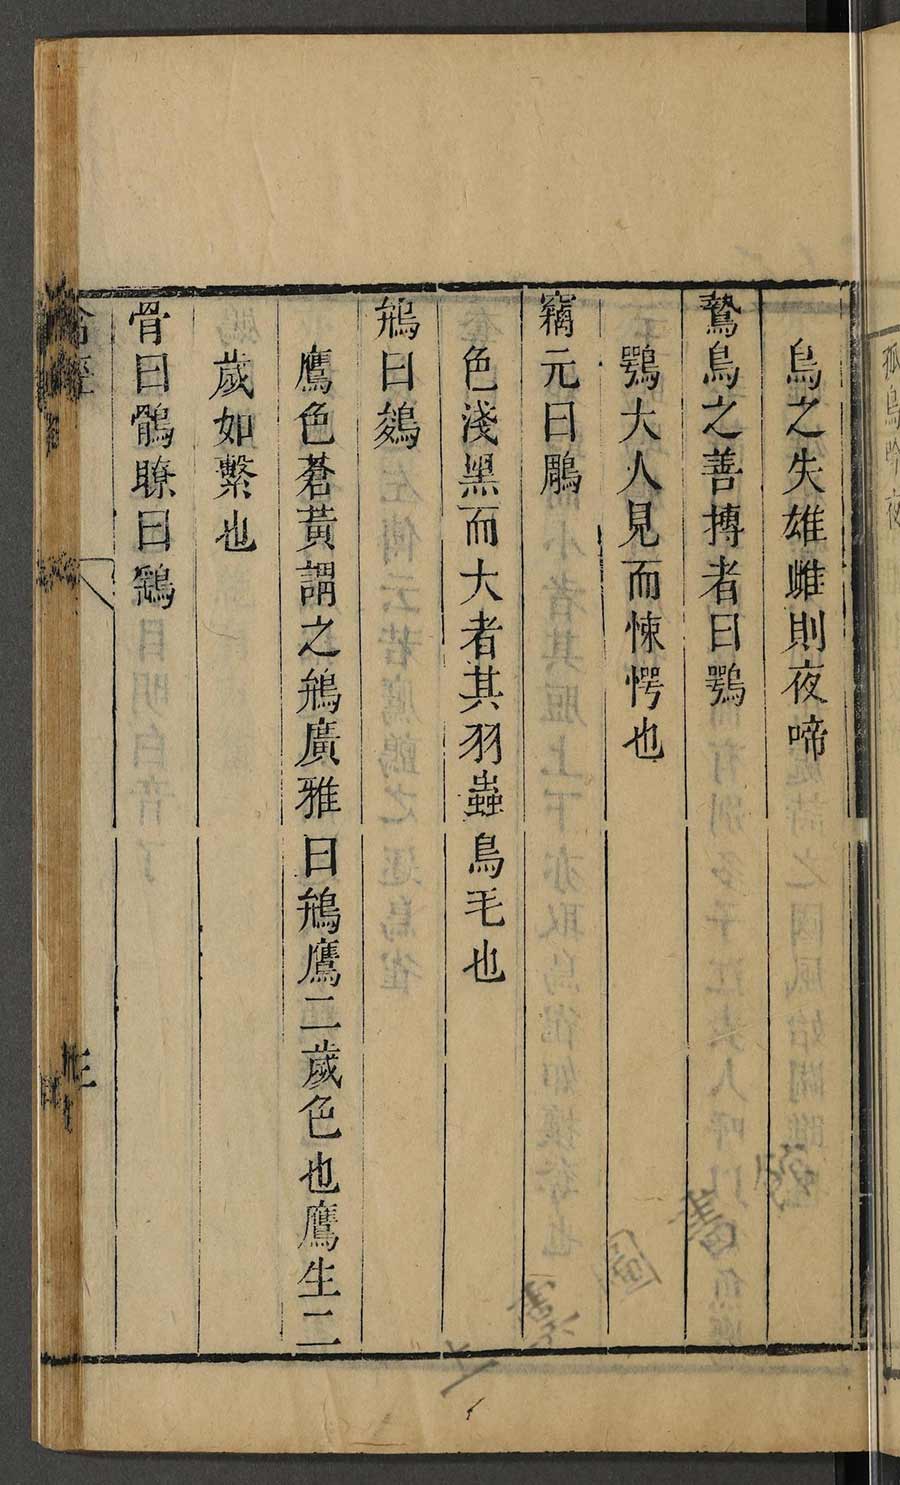 烏之失雄雌則夜啼
鷙鳥之善搏者曰鶚
鶚大人見而悚愕也
竊元曰鵰
色淺黑而大者其羽蟲鳥毛也
鳻曰鷄
鷹色蒼黃謂之鳻廣雅曰鳻鷹二歲色也鷹生二
歲如繫也
骨曰鶻瞭曰鷂
禽經
三